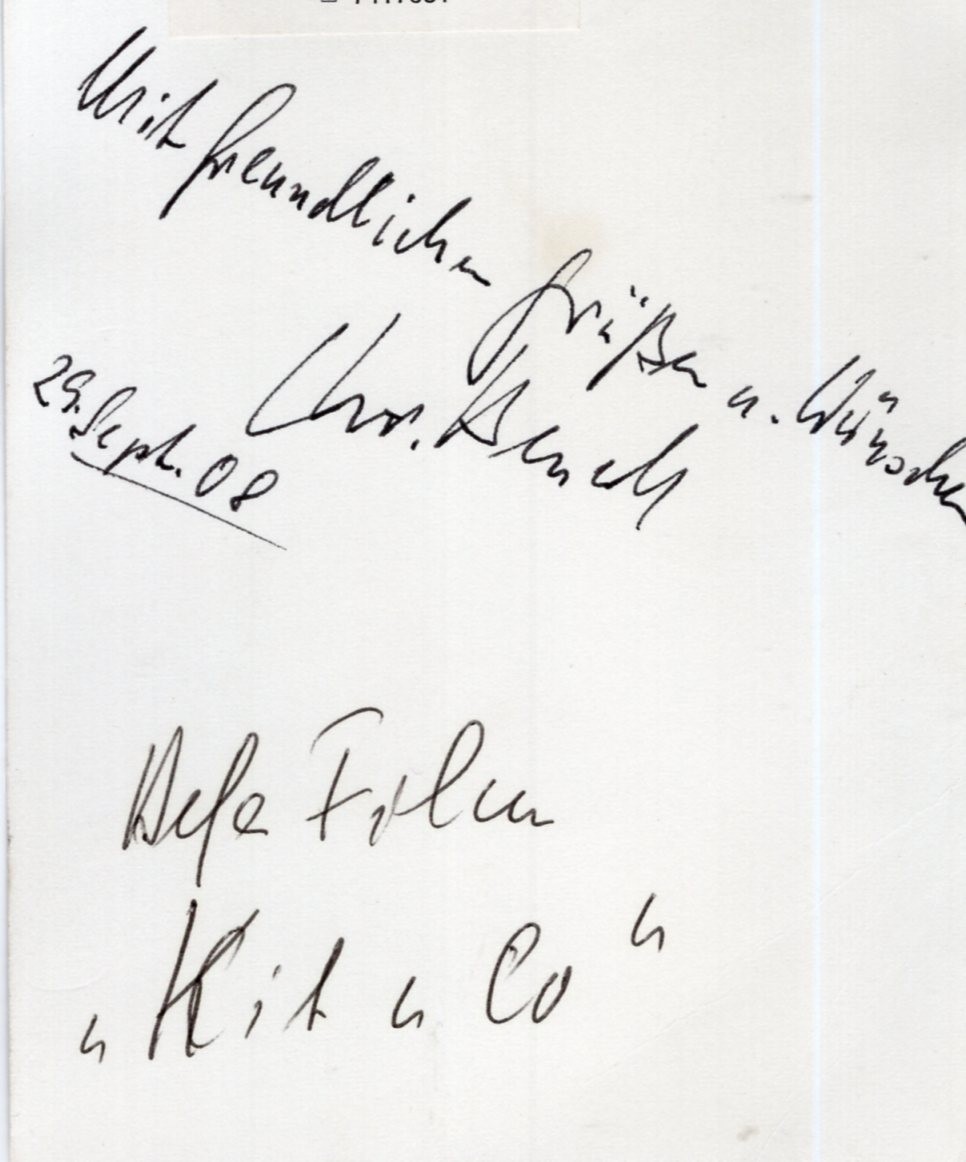 Mit freundlichen Grüßen u. Wünschen
29. Sept. 08
Defa Film
"Kit u Co"